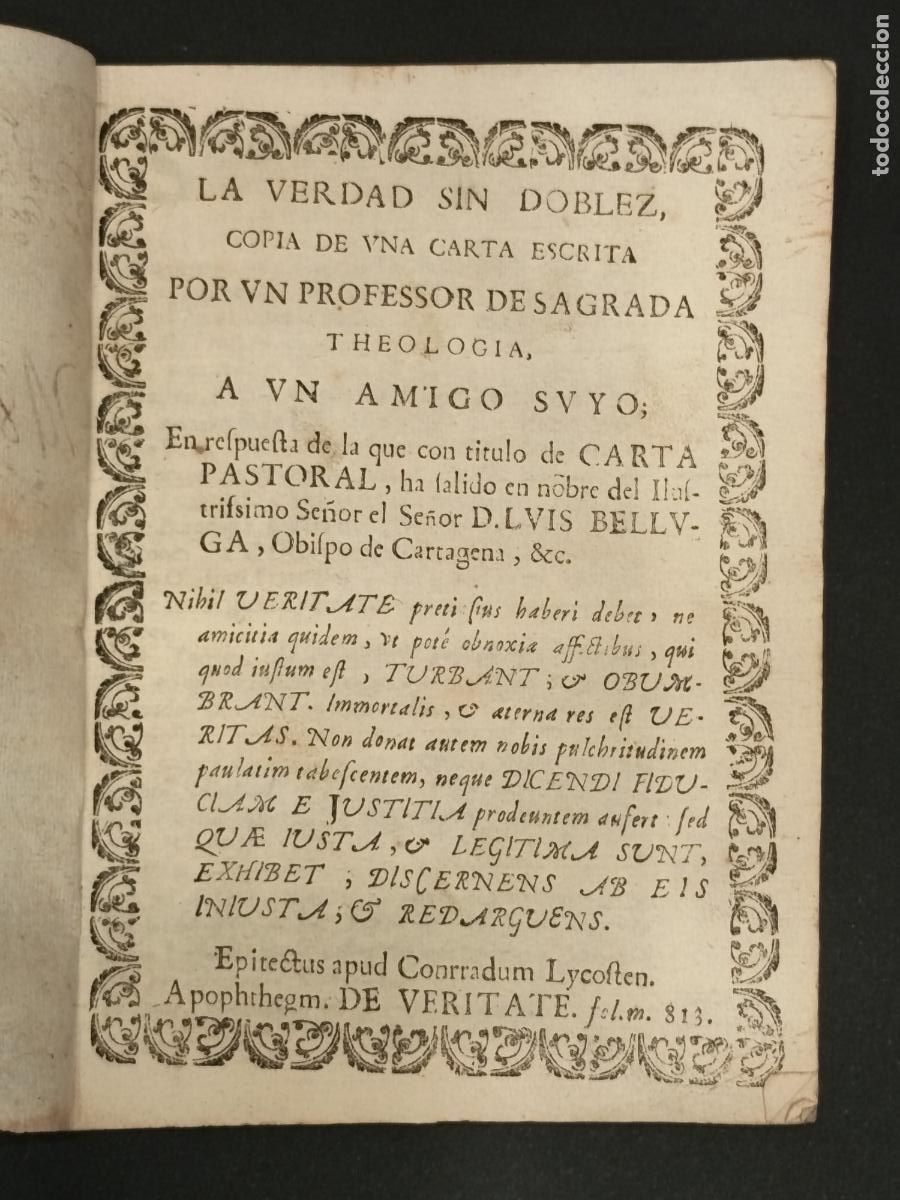 LA VERDAD SIN DOBLEZ,
COPIA DE VNA CARTA ESCRITA
POR VN PROFESSOR DE SAGRADA
THEOLOGIA,
A VN AMIGO SVYO;
En reſpueſta de la que con titulo de CARTA
PASTORAL, ha ſalido en nōbre del Iluſ-
triſsimo Señor el Señor D. LVIS BELLV-
GA, Obiſpo de Cartagena, &c.
Nihil VERITATE pretioſius haberi debet, ne
amicitia quidem, vt poté obnoxia affectibus, qui
quod iuſtum eſt, TURBANT; & OBUM-
BRANT. Immortalis, & æterna res eſt VE-
RITAS. Non donat autem nobis pulchritudinem
paulatim tabeſcentem, neque DICENDI FIDU-
CIAM E JUSTITIA prodeuntem aufert: ſed
QUÆ IUSTA, & LEGITIMA SUNT,
EXHIBET; DISCERNENS AB EIS
INIUSTA; & REDARGUENS.
Epitectus apud Conrradum Lycoſten.
Apophthegm. DE VERITATE. fol. m. 813.
todocoleccion